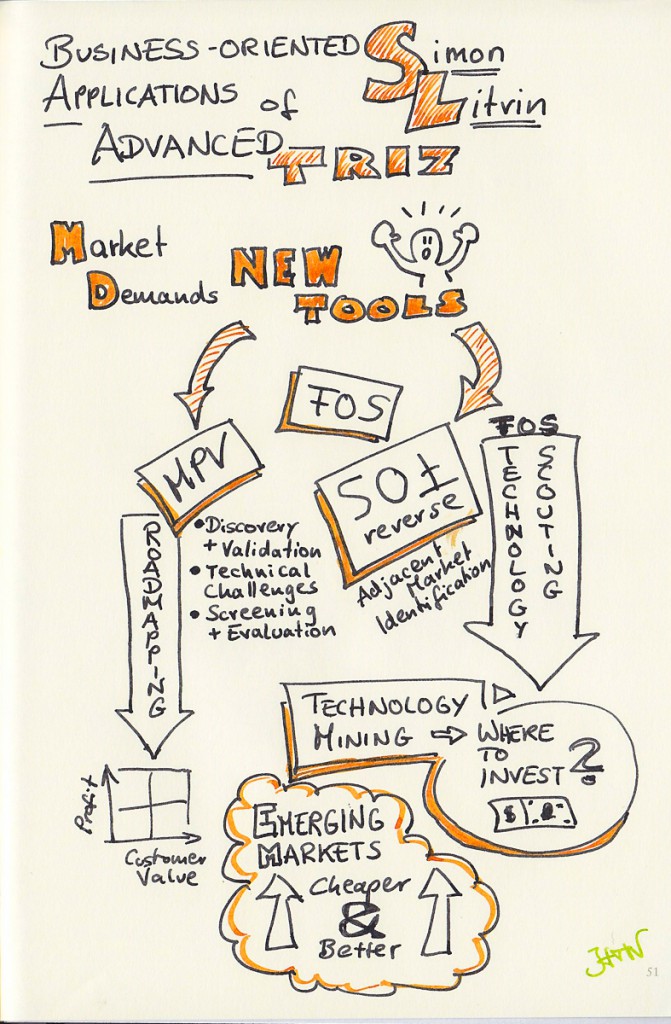 BUSINESS-ORIENTED Simon
APPLICATIONS of Litvin
ADVANCED TRIZ
Market
Demands
NEW
TOOLS
FOS
MPV
ROADMAPPING
• Discovery
+ Validation
• Technical
Challenges
• Screening
+ Evaluation
reverse
Adjacent
Market
Identification
FOS
TECHNOLOGY
SCOUTING
TECHNOLOGY
MINING ⇒ WHERE
TO
INVEST ?
$
Profit
Customer
Value
EMERGING
MARKETS
Cheaper
&
Better
51